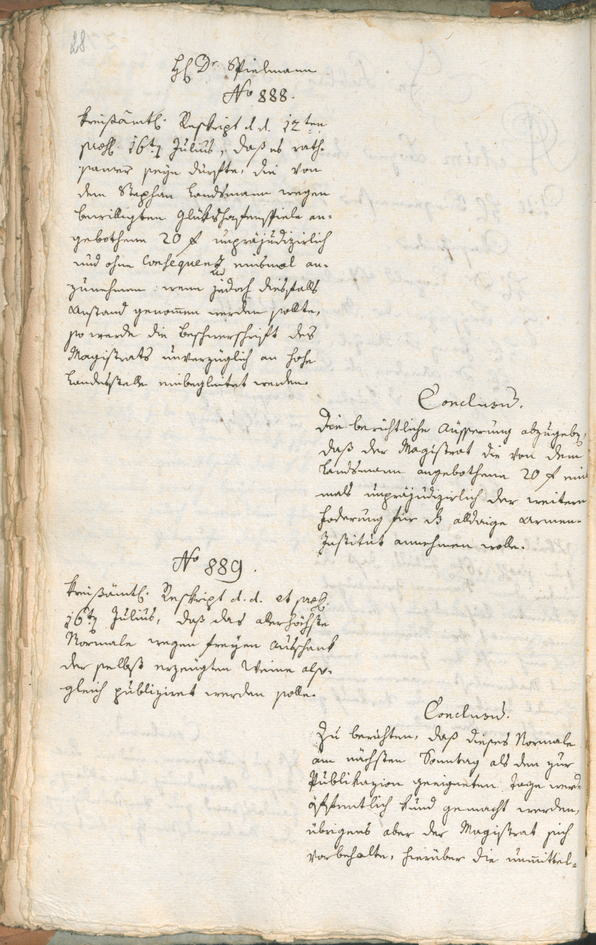 28
H. Dr. Spielmann
No 888.
Kreißämtl. Reskript d. d. 12ten
præs. 16ten Julius, daß es rath-
samer seyn dürfte, die von
dem Stephan Landsmann wegen
bewilligten Glückshafenspiele an-
gebothene 20 f unpräjudizirlich
und ohne Consequenz einsmal an-
zunehmen und wenn jedoch diesfalls
Anstand genommen werden sollte,
so werde die Beschwerschrift des
Magistrats unverzüglich an hohe
Landesstelle einbegleitet werden.
Conclusum.
Die berichtliche Äusserung abzugeben,
daß der Magistrat die von dem
Landsmann angebothene 20 f ein
mals unpräjudizirlich der weitern
Foderung für das alldaige Armen-
Institut annehmen wolle.
No 889.
Kreißämtl. Reskript d. d. et præs.
16ten Julius, daß das allerhöchste
Normale wegen freyen Ausschank
der selbst erzeugten Weine also-
gleich publiziret werden solle.
Conclusum.
Zu berichten, daß dieses Normale
am nächsten Sonntag als dem zur
Publikazion geeigneten Tage werde
öffentlich kund gemacht werden,
übrigens aber der Magistrat sich
vorbehalte, hierüber die unmittel-